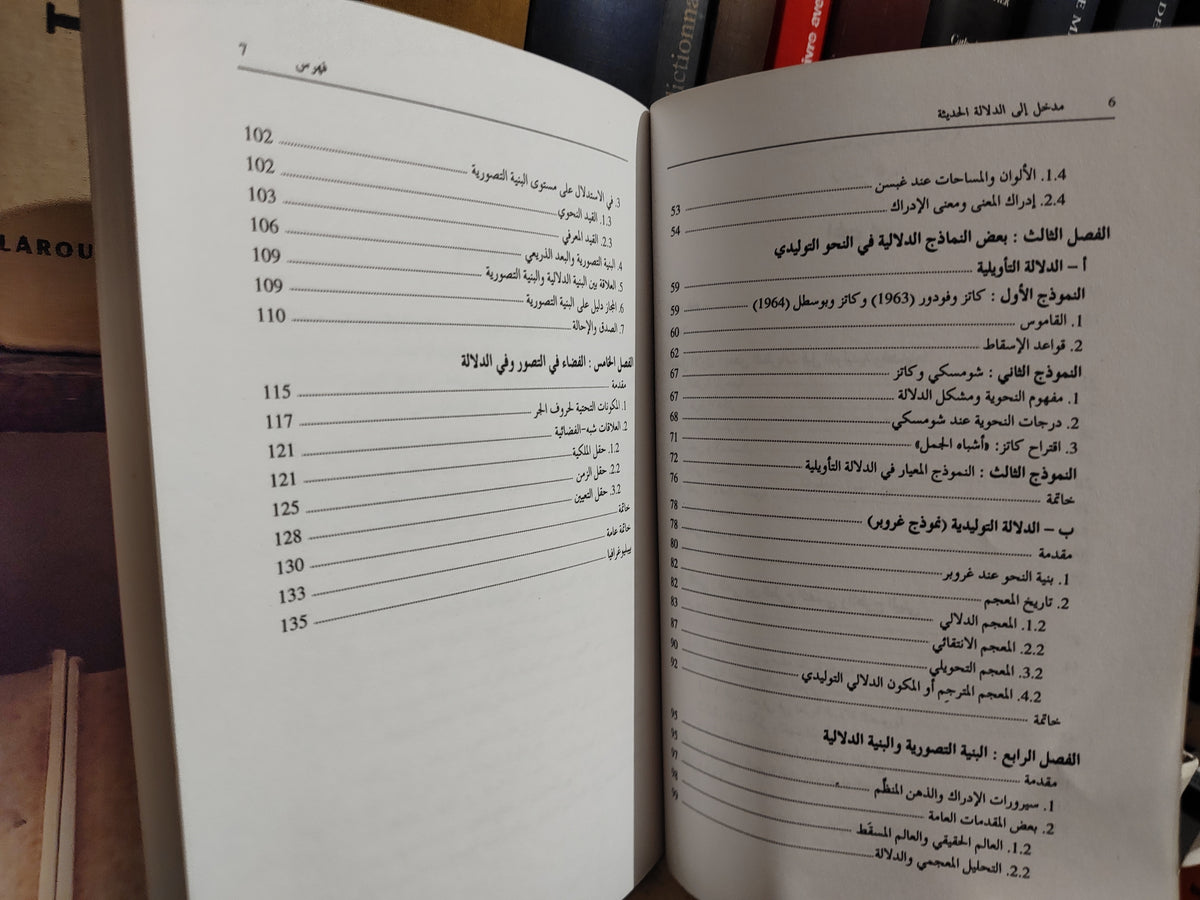 مدخل إلى الدلالة الحديثة 6
1.4. الألوان والمساحات عند غبسن 53
2.4. إدراك المعنى ومعنى الإدراك 54
الفصل الثالث : بعض النماذج الدلالية في النحو التوليدي
أ – الدلالة التأويلية 59
النموذج الأول : كاتز وفودور (1963) وكاتز وبوسطل (1964) 59
1. القاموس 60
2. قواعد الإسقاط 62
النموذج الثاني : شومسكي وكاتز 67
1. مفهوم النحوية ومشكل الدلالة 67
2. درجات النحوية عند شومسكي 68
3. اقتراح كاتز: «أشباه الجمل» 71
النموذج الثالث : النموذج المعيار في الدلالة التأويلية 72
خاتمة 76
ب – الدلالة التوليدية (نموذج غروبر) 78
مقدمة 78
1. بنية النحو عند غروبر 80
2. تاريخ المعجم 82
1.2. المعجم الدلالي 82
2.2. المعجم الانتقائي 83
3.2. المعجم التحويلي 87
4.2. المعجم المترجِم أو المكون الدلالي التوليدي 90
خاتمة 92
الفصل الرابع : البنية التصورية والبنية الدلالية
مقدمة 95
1. سيرورات الإدراك والذهن المنظِّم 95
2. بعض المقدمات العامة 97
1.2. العالم الحقيقي والعالم المسقَط 98
2.2. التحليل المعجمي والدلالة 99
فهرس 7
3. في الاستدلال على مستوى البنية التصورية 102
1.3. القيد النحوي 102
2.3. القيد المعرفي 103
4. البنية التصورية والبعد الذريعي 106
5. العلاقة بين البنية الدلالية والبنية التصورية 109
6. المجاز دليل على البنية التصورية 109
7. الصدق والإحالة 110
الفصل الخامس : الفضاء في التصور وفي الدلالة
مقدمة 115
1. المكونات التحتية لحروف الجر 117
2. العلاقات شبه-الفضائية 121
1.2. حقل الملكية 121
2.2. حقل الزمن 125
3.2. حقل التعيين 128
خاتمة 130
خاتمة عامة 133
ببليوغرافيا 135
LAROU
dictionna
ivre ave